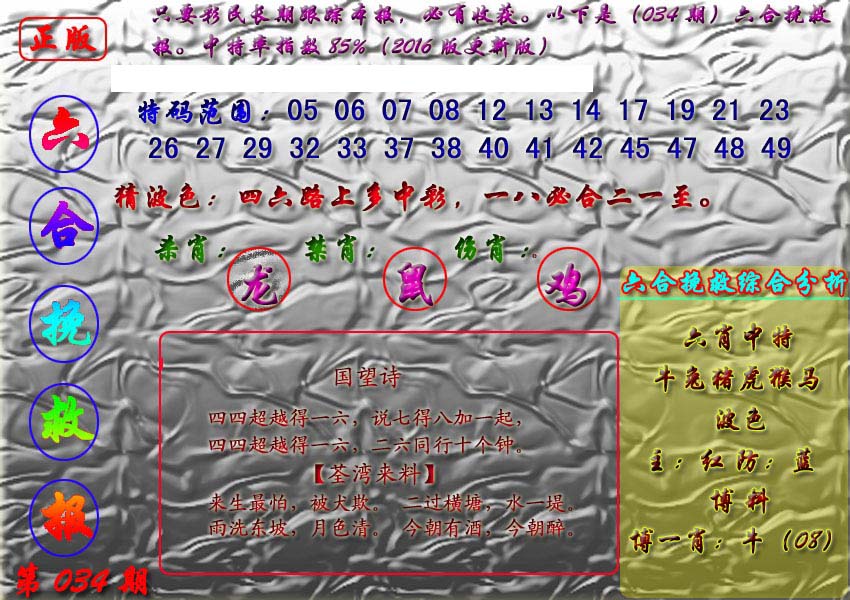 正版
只要彩民长期跟踪本报，必有收获。以下是（034期）六合挽救
报。中特率指数85%（2016版更新版）
六合挽救报
第034期
特码范围：05 06 07 08 12 13 14 17 19 21 23
26 27 29 32 33 37 38 40 41 42 45 47 48 49
猜波色：四六路上多中彩，一八必合二一至。
杀肖：龙 禁肖：鼠 伤肖：鸡
国望诗
四四超越得一六，说七得八加一起，
四四超越得一六，二六同行十个钟。
【荃湾来料】
来生最怕，被犬欺。 二过横塘，水一堤。
雨洗东坡，月色清。 今朝有酒，今朝醉。
六合挽救综合分析
六肖中特
牛兔猪虎猴马
波色
主：红防：蓝
博料
博一肖：牛（08）